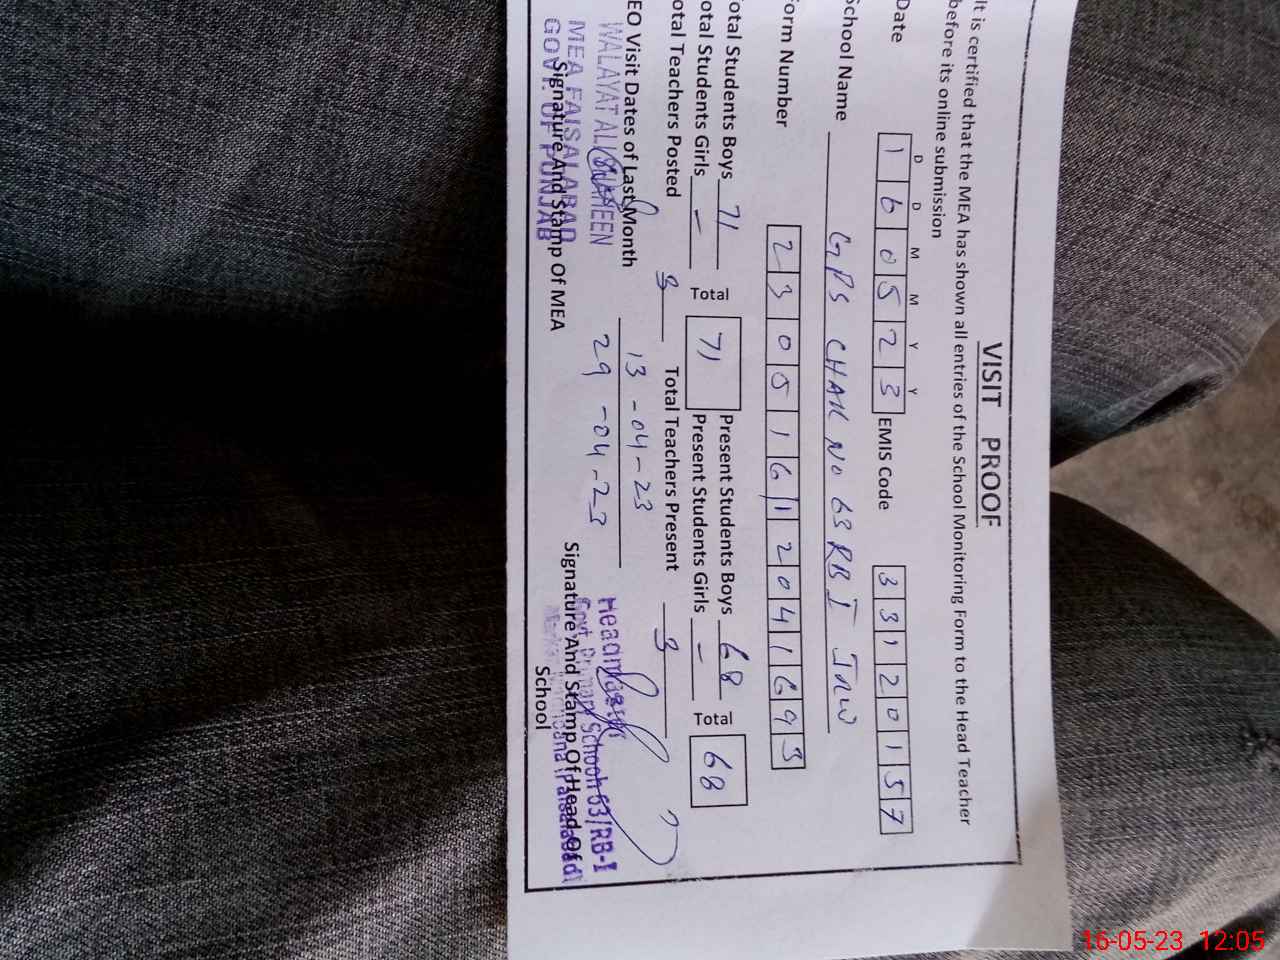 VISIT PROOF
It is certified that the MEA has shown all entries of the School Monitoring Form to the Head Teacher
before its online submission
D D M M Y Y
Date 1 6 0 5 2 3 EMIS Code 3 3 1 2 0 1 5 7
School Name GPS CHAK NO 63 RB I JNW
Form Number 2 3 0 5 1 6 1 2 0 4 1 6 9 3
Total Students Boys 71 Total 71 Present Students Boys 68 Total 68
Total Students Girls – Present Students Girls –
Total Teachers Posted 3 Total Teachers Present 3
EO Visit Dates of Last Month 13-04-23
29-04-23
WALAYAT ALI SHAHEEN
MEA FAISALABAD
GOVT. OF PUNJAB
Signature And Stamp Of MEA
Headmaster
Govt. Primary School 63/RB-I
Signature And Stamp Of Head Of
School
16-05-23 12:05